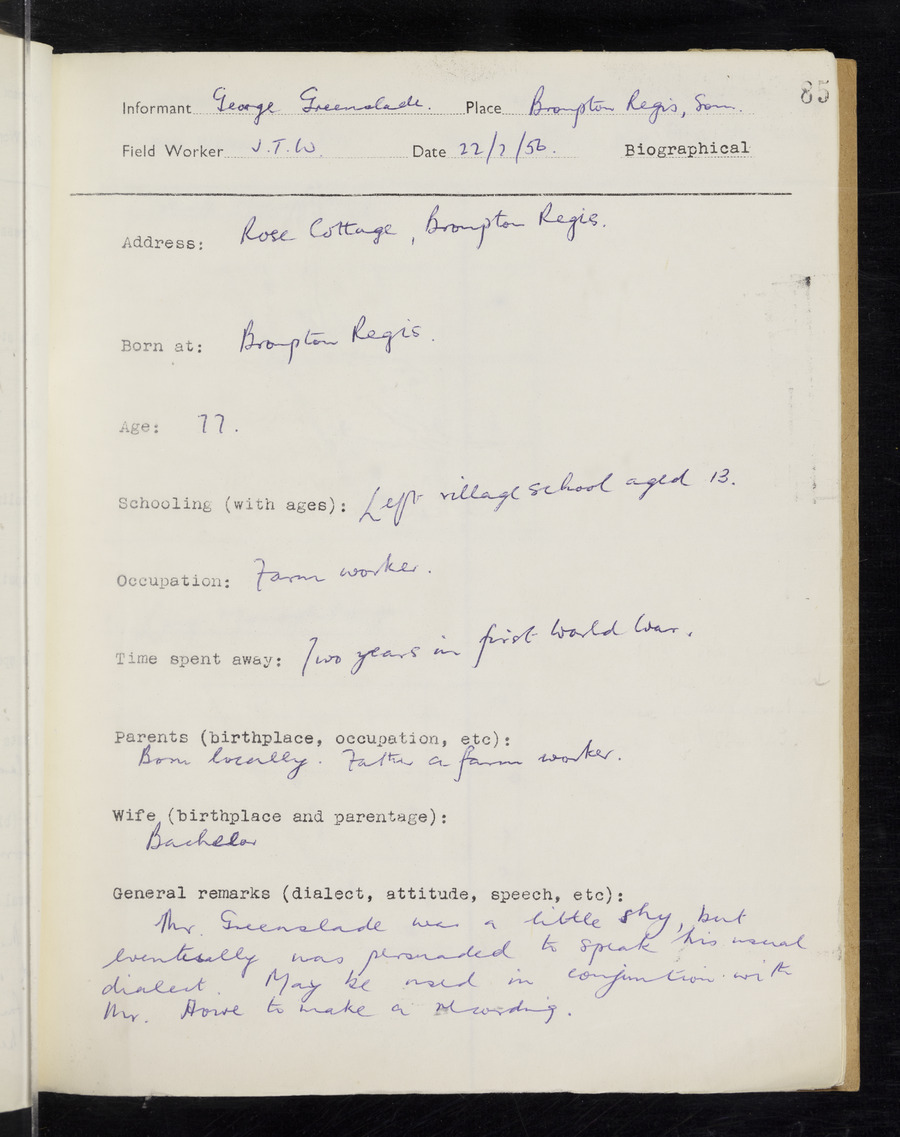 85
Informant George Greenslade. Place Brompton Regis, Som.
Field Worker J.T.W. Date 22/7/56. Biographical
Address: Rose Cottage, Brompton Regis.
Born at: Brompton Regis.
Age: 77.
Schooling (with ages): Left village school aged 13.
Occupation: Farm worker.
Time spent away: Two years in first World War.
Parents (birthplace, occupation, etc):
Born locally. Father a farm worker.
Wife (birthplace and parentage):
Bachelor
General remarks (dialect, attitude, speech, etc):
Mr. Greenslade was a little shy, but
eventually was persuaded to speak his usual
dialect. May be used in conjunction with
Mr. Howe to make a recording.